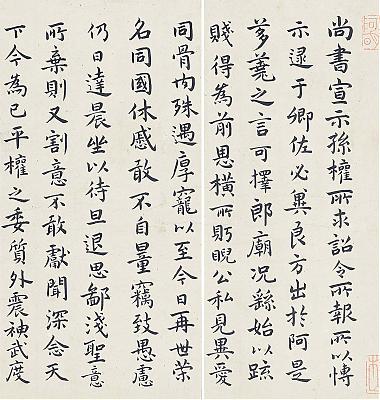 尚書宣示孫權所求詔令所報所以博
示逮于卿佐必冀良方出於阿是
芻蕘之言可擇郎廟況繇始以疏
賤得為前恩橫所眄睨公私見異愛
同骨肉殊遇厚寵以至今日再世榮
名同國休戚敢不自量竊致愚慮
仍日達晨坐以待旦退思鄙淺聖意
所棄則又割意不敢獻聞深念天
下今為已平權之委質外震神武度